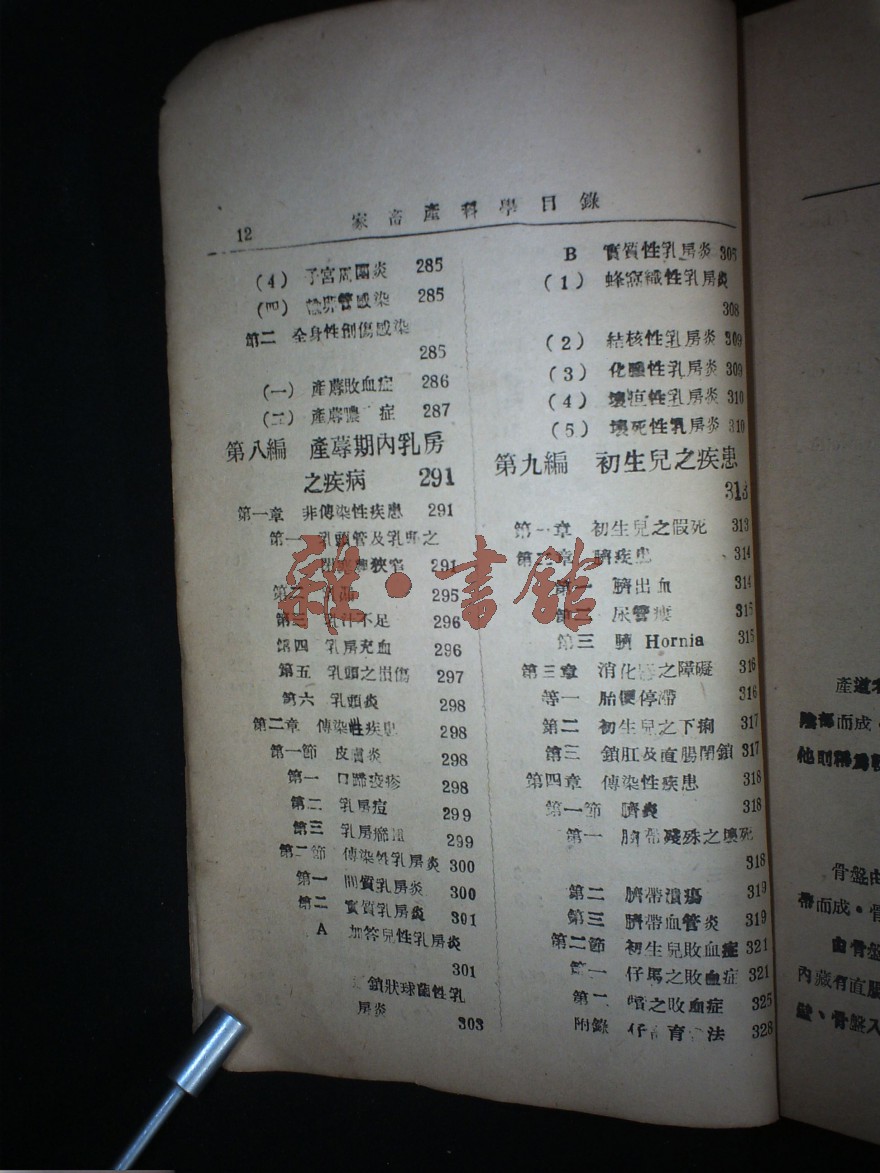 12
家畜產科學目錄
(4) 子宮周圍炎 285
(四) 管感染 285
第二 全身性創傷感染
285
(一) 產蓐敗血症 286
(二) 產蓐膿 症 287
第八編 產蓐期內乳房
之疾病 291
第一章 非傳染性疾患 291
第一 乳頭管及乳 之
狹窄 291
第二 295
第三 乳汁不足 296
第四 乳房充血 296
第五 乳頭之損傷 297
第六 乳頭炎 298
第二章 傳染性疾患 298
第一節 皮膚炎 298
第一 口蹄疫疹 298
第二 乳房痘 299
第三 乳房 299
第二節 傳染性乳房炎 300
第一 間質乳房炎 300
第二 實質乳房炎 301
A 加答兒性乳房炎
301
鎖狀球菌性乳
房炎
303
B 實質性乳房炎 305
(1) 蜂窩織性乳房炎
308
(2) 結核性乳房炎 309
(3) 化膿性乳房炎 309
(4) 壞疽性乳房炎 310
(5) 壞死性乳房炎 310
第九編 初生兒之疾患
313
第一章 初生兒之假死 313
第二章 臍疾患 314
第一 臍出血 314
第二 尿管瘻 315
第三 臍 Hornia 315
第三章 消化器之障礙 316
等一 胎便停滯 316
第二 初生兒之下痢 317
第三 鎖肛及直腸閉鎖 317
第四章 傳染性疾患 318
第一節 臍炎 318
第一 臍帶殘殊之壞死
318
第二 臍帶潰瘍 319
第三 臍帶血管炎 319
第二節 初生兒敗血症 321
第一 仔馬之敗血症 321
第二 犢之敗血症 325
附錄 仔畜育 法 328
產道者
陰部而成・
他則稱爲
骨盤由
帶而成・骨
由骨盤
內藏有直腸
骨盤入
雜・書館